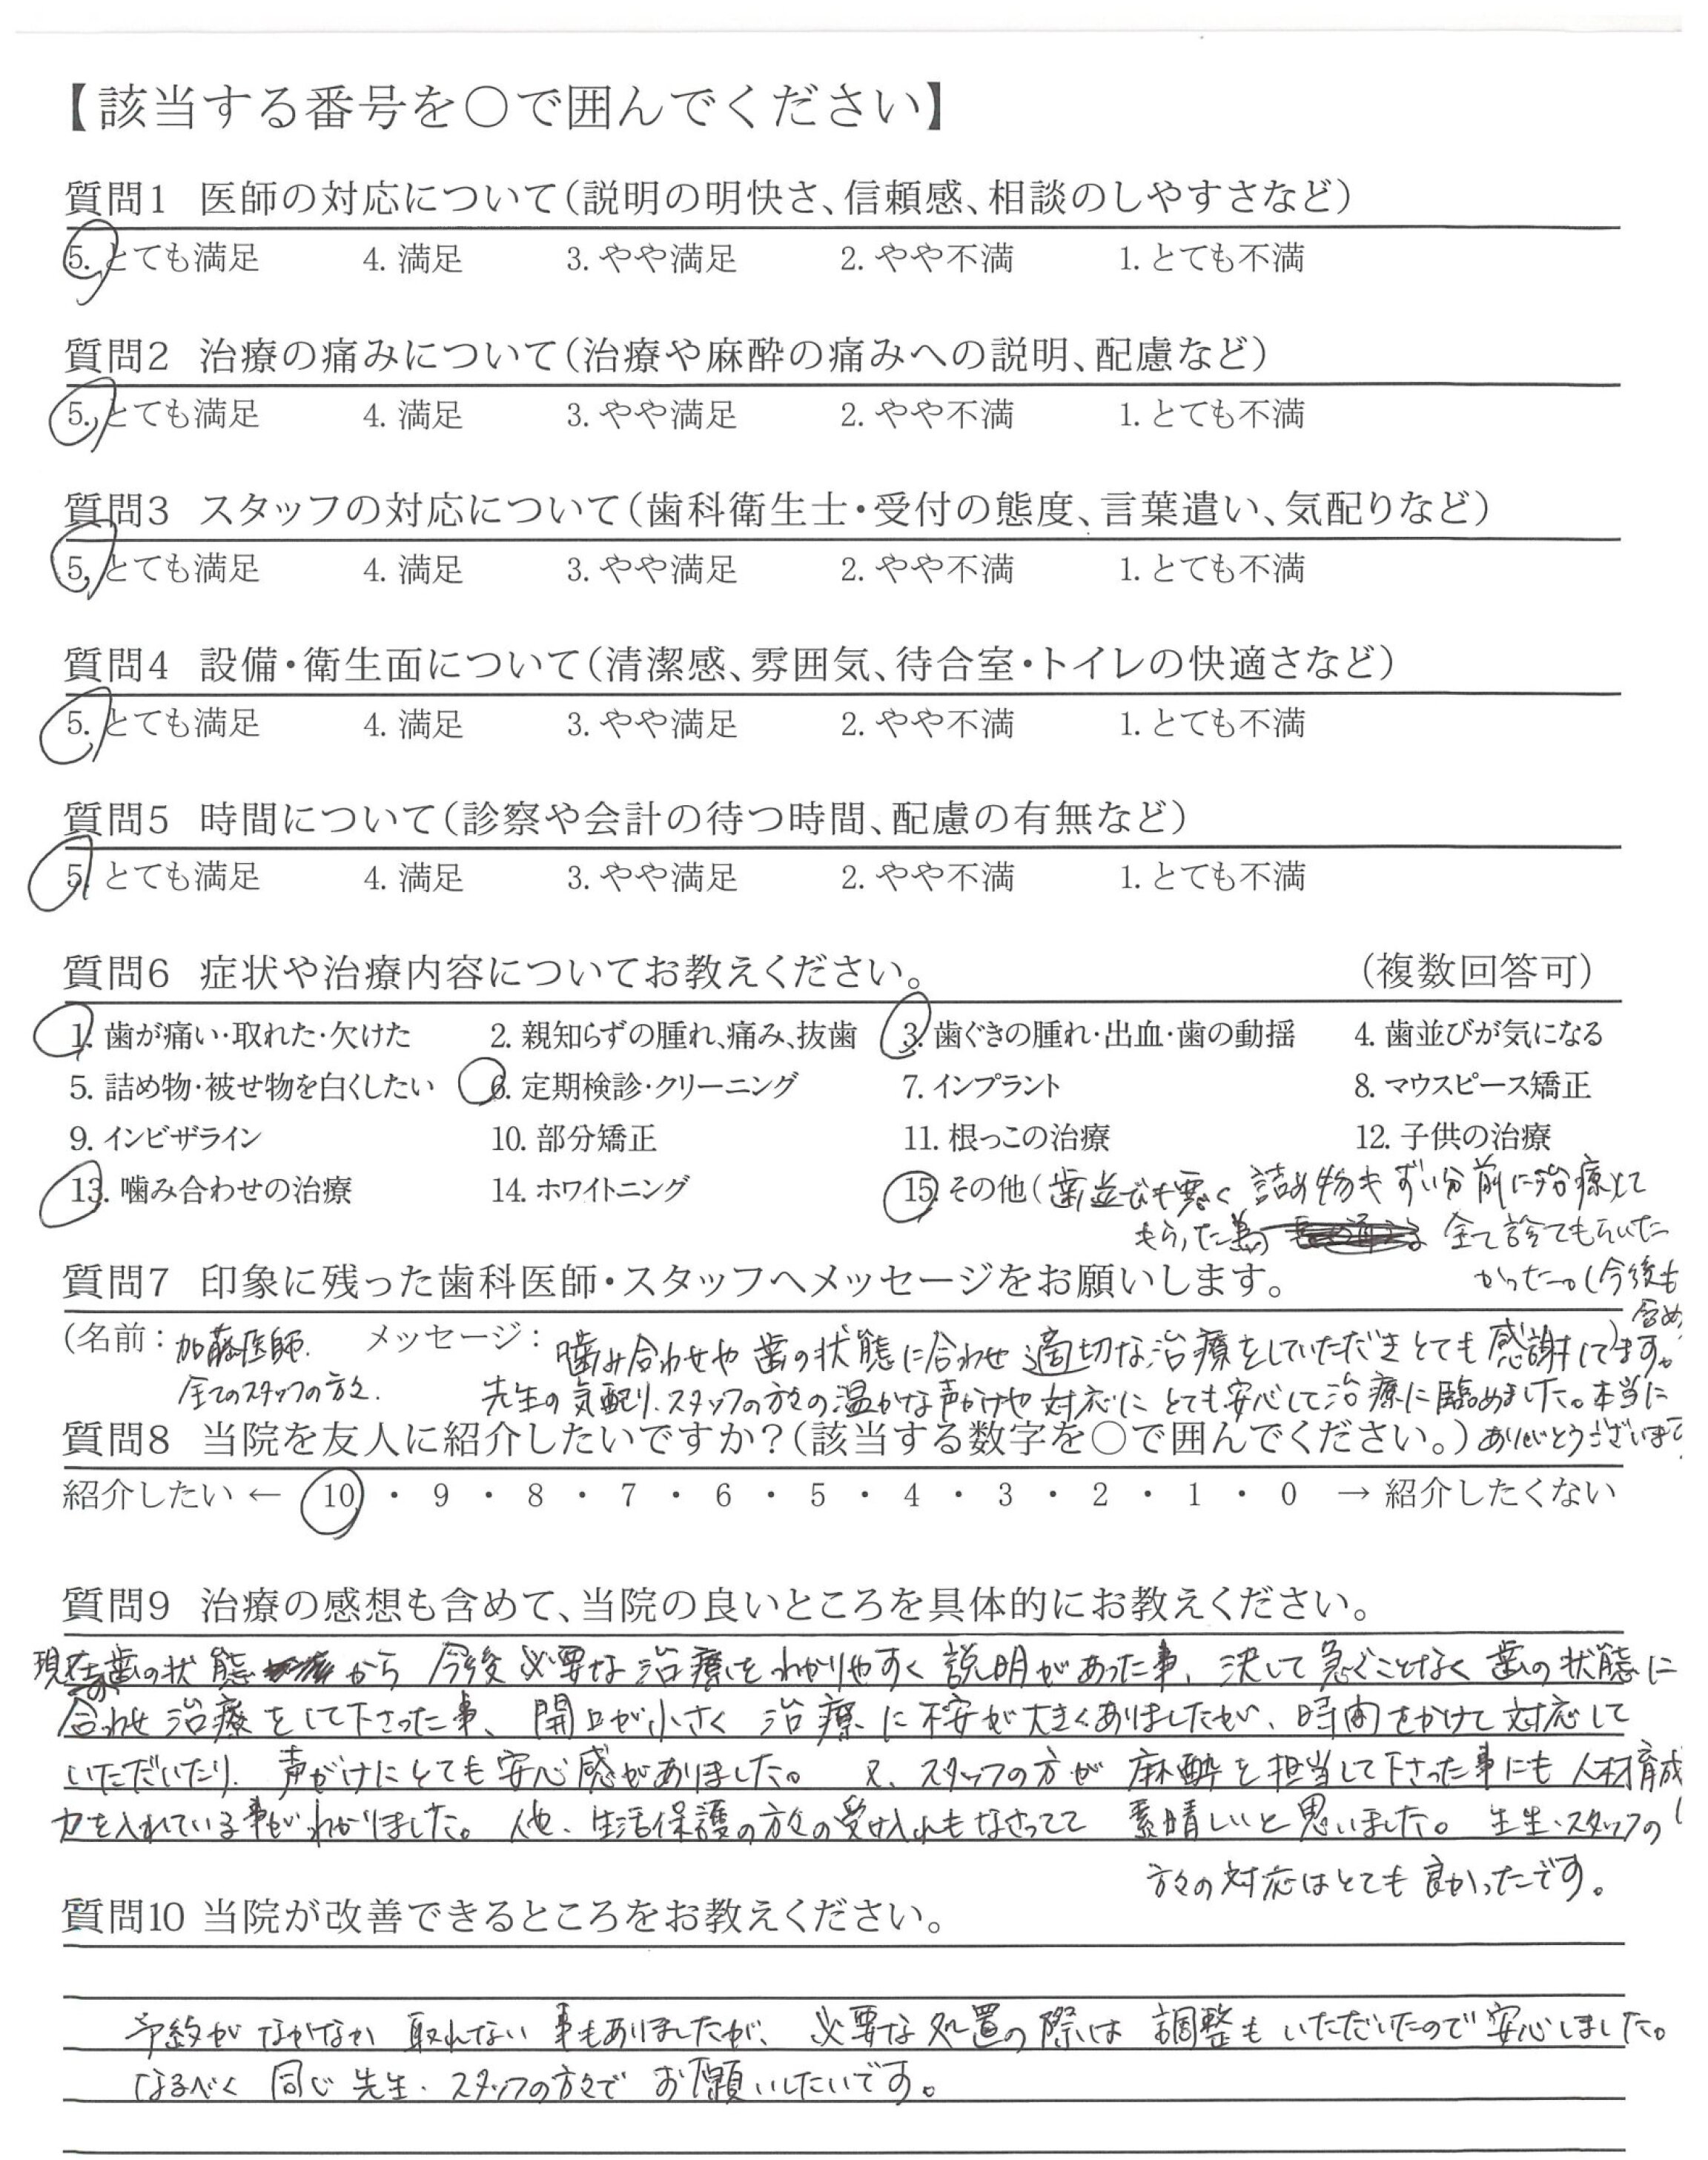 【該当する番号を〇で囲んでください】
質問1 医師の対応について(説明の明快さ、信頼感、相談のしやすさなど)
5. とても満足 4. 満足 3. やや満足 2. やや不満 1. とても不満
質問2 治療の痛みについて(治療や麻酔の痛みへの説明、配慮など)
5. とても満足 4. 満足 3. やや満足 2. やや不満 1. とても不満
質問3 スタッフの対応について(歯科衛生士・受付の態度、言葉遣い、気配りなど)
5. とても満足 4. 満足 3. やや満足 2. やや不満 1. とても不満
質問4 設備・衛生面について(清潔感、雰囲気、待合室・トイレの快適さなど)
5. とても満足 4. 満足 3. やや満足 2. やや不満 1. とても不満
質問5 時間について(診察や会計の待つ時間、配慮の有無など)
5. とても満足 4. 満足 3. やや満足 2. やや不満 1. とても不満
質問6 症状や治療内容についてお教えください。 (複数回答可)
1. 歯が痛い・取れた・欠けた 2. 親知らずの腫れ、痛み、抜歯 3. 歯ぐきの腫れ・出血・歯の動揺 4. 歯並びが気になる
5. 詰め物・被せ物を白くしたい 6. 定期検診・クリーニング 7. インプラント 8. マウスピース矯正
9. インビザライン 10. 部分矯正 11. 根っこの治療 12. 子供の治療
13. 噛み合わせの治療 14. ホワイトニング 15. その他(歯並びも悪く 詰め物も ずい分前に治療して
もらった為 全て診てもらいた
かった。(今後も
含め)
質問7 印象に残った歯科医師・スタッフへメッセージをお願いします。
(名前: 加藤医師. メッセージ: 噛み合わせや歯の状態に合わせ適切な治療をしていただきとても感謝してます。
全てのスタッフの方々. 先生の気配り、スタッフの方々の温かな声かけや対応にとても安心して治療に臨めました。本当に
ありがとうございま
質問8 当院を友人に紹介したいですか?(該当する数字を〇で囲んでください。)
紹介したい ← 10 ・ 9 ・ 8 ・ 7 ・ 6 ・ 5 ・ 4 ・ 3 ・ 2 ・ 1 ・ 0 → 紹介したくない
質問9 治療の感想も含めて、当院の良いところを具体的にお教えください。
現在の歯の状態から今後必要な治療をわかりやすく説明があった事、決して急ぐことなく歯の状態に
合わせ治療をして下さった事、開口が小さく治療に不安が大きくありましたが、時間をかけて対応して
いただいたり、声がけにとても安心感がありました。又、スタッフの方が麻酔を担当して下さった事にも人材育成
力を入れている事がわかりました。他、生活保護の方々の受け入れもなさってて素晴しいと思いました。生生・スタッフの
方々の対応はとても良かったです。
質問10 当院が改善できるところをお教えください。
予約がなかなか取れない事もありましたが、必要な処置の際は調整もいただいたので安心しました。
なるべく同じ先生・スタッフの方々でお願いしたいです。